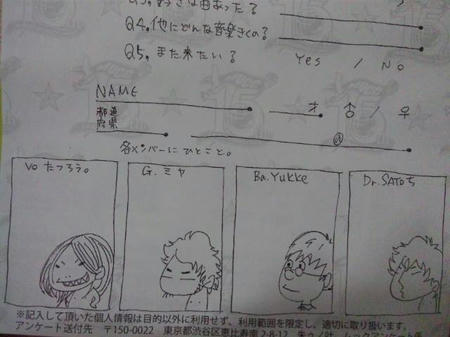 Q4.他にどんな音楽きくの?
Q5.また来たい? Yes / No
NAME
都道府県 才 ♂ / ♀
@
各メンバーにひとこと。
Vo たつろう。 G.ミヤ Ba.Yukke Dr.SATOち
※記入して頂いた個人情報は目的以外に利用せず、利用範囲を限定し、適切に取り扱います。
アンケート送付先 〒150-0022 東京都渋谷区恵比寿南2-8-12